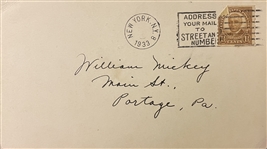 NEW YORK, N.Y. 8
1933
ADDRESS
YOUR MAIL
TO
STREET AND
NUMBER
William Mickey
Main St.,
Portage, Pa.